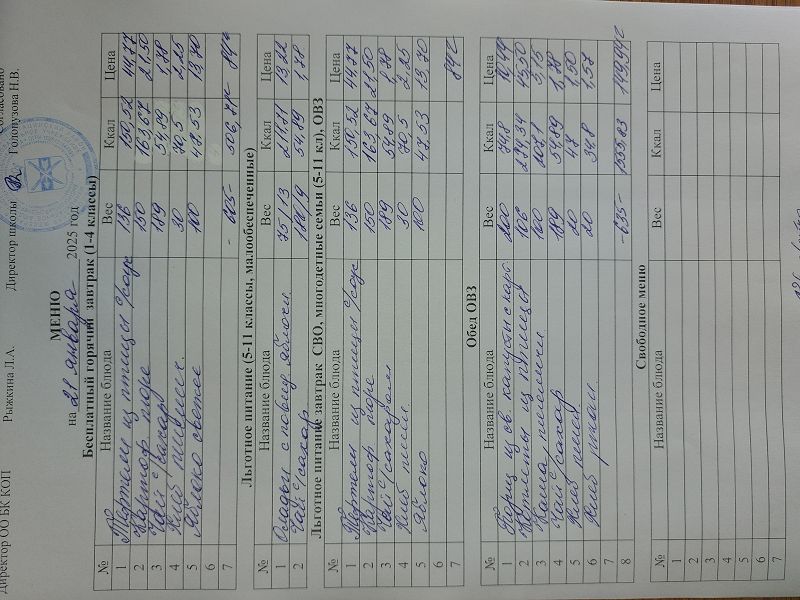 Согласовано
Директор ОО БК КОП Рыжкина Л.А. Директор школы Голопузова Н.В.
МЕНЮ
на 21 января 2025 год
Бесплатный горячий завтрак (1-4 классы)
№ Название блюда Вес Ккал Цена
1 Тефтели из птицы с/соус 136 150,52 44,77
2 Картоф. пюре 150 163,67 21,50
3 Чай с/сахар 189 54,89 1,78
4 Хлеб пшенич. 30 70,5 2,25
5 Яблоко свежее 100 47,53 13,70
6
7 - 605-
Льготное питание (5-11 классы, малообеспеченные)
№ Название блюда Вес Ккал Цена
1 Оладьи с повид. яблочн. 75/13 13,22
2 Чай с/сахар 180/9 54,89 1,78
Льготное питание завтрак СВО, многодетные семьи (5-11 кл), ОВЗ
№ Название блюда Вес Ккал Цена
1 Тефтели из птицы с/соус 136 150,52 44,77
2 Картоф пюре 150 163,67 21,50
3 Чай с/сахаром 189 54,89 1,78
4 Хлеб пшен. 30 70,5 2,25
5 Яблоко 100 47,53 13,70
6
7
Обед ОВЗ
№ Название блюда Вес Ккал Цена
1 из св. капусты с карт 200
2 Котлеты из птицы 100 274,34 43,50
3 Каша пшеничн. 100 3,15
4 Чай сахар 189 54,89 1,78
5 Хлеб пшен. 20 47 1,50
6 Хлеб ржан. 20 34,8 1,57
7
8 -635-
Свободное меню
№ Название блюда Вес Ккал Цена
1
2
3
4
5
6
7